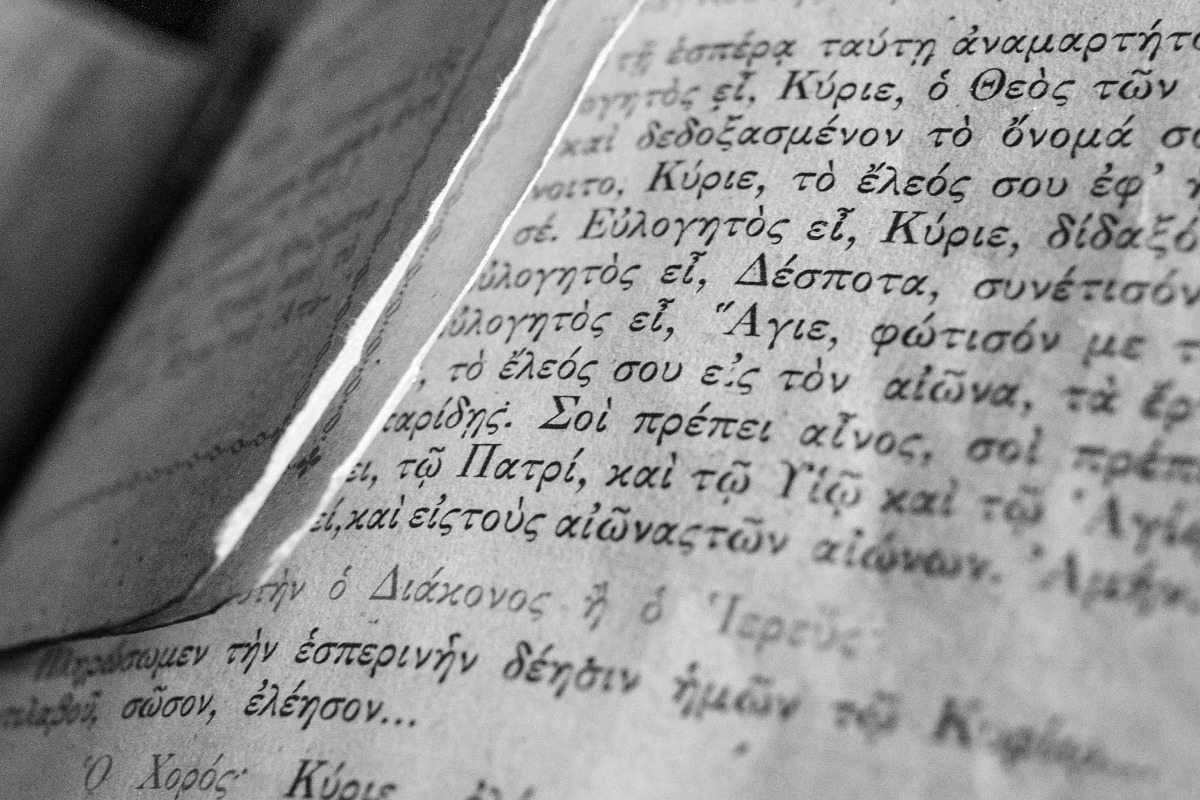 τῇ ἑσπέρᾳ ταύτῃ ἀναμαρτήτο
ογητὸς εἶ, Κύριε, ὁ Θεὸς τῶν
καὶ δεδοξασμένον τὸ ὄνομά σο
νοιτο, Κύριε, τὸ ἔλεός σου ἐφ᾽
σέ. Εὐλογητὸς εἶ, Κύριε, δίδαξό
ὐλογητὸς εἶ, Δέσποτα, συνέτισόν
ὐλογητὸς εἶ, Ἅγιε, φώτισόν με τ
, τὸ ἔλεός σου εἰς τὸν αἰῶνα, τὰ ἔρ
αρίδῃς. Σοὶ πρέπει αἶνος, σοὶ πρέπ
ει, τῷ Πατρί, καὶ τῷ Υἱῷ καὶ τῷ Ἁγίῳ
εί, καὶ εἰς τοὺς αἰῶνας τῶν αἰώνων. Ἀμήν.
τὴν ὁ Διάκονος ἢ ὁ Ἱερεύς·
Πληρώσωμεν τὴν ἑσπερινὴν δέησιν ἡμῶν τῷ Κυρίῳ...
σῶσον, ἐλέησον...
Ὁ Χορός· Κύριε